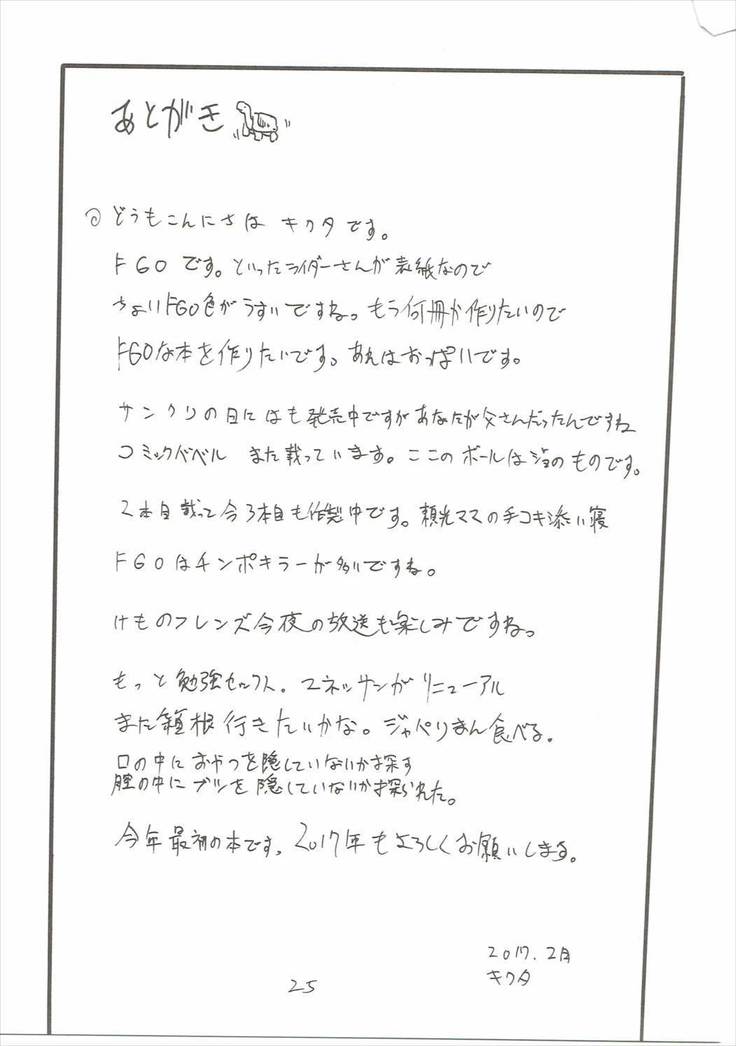 あとがき
どうもこんにちは キクタです。
FGOです。といったライダーさんが表紙なので
ちょいFGO色がうすいですね。もう何冊か作りたいので
FGOな本を作りたいです。あんはおっぱいです。
サンクリの日にはも発売中ですがあなたが父さんだったんですね
コミックバベル また載っています。ここのボールはジョのものです。
2本目載って今3本目も作製中です。頼光ママの手コキ添い寝
FGOはチンポキラーが多いですね。
けものフレンズ今夜の放送も楽しみですね。
もっと勉強せんと。ユネッサンがリニューアル
また箱根行きたいかな。ジャペリまん食べる。
口の中におやつを隠していないか探す
膣の中にブツを隠していないか探られた。
今年最初の本です。2017年もよろしくお願いします。
2017.2月
キクタ
25